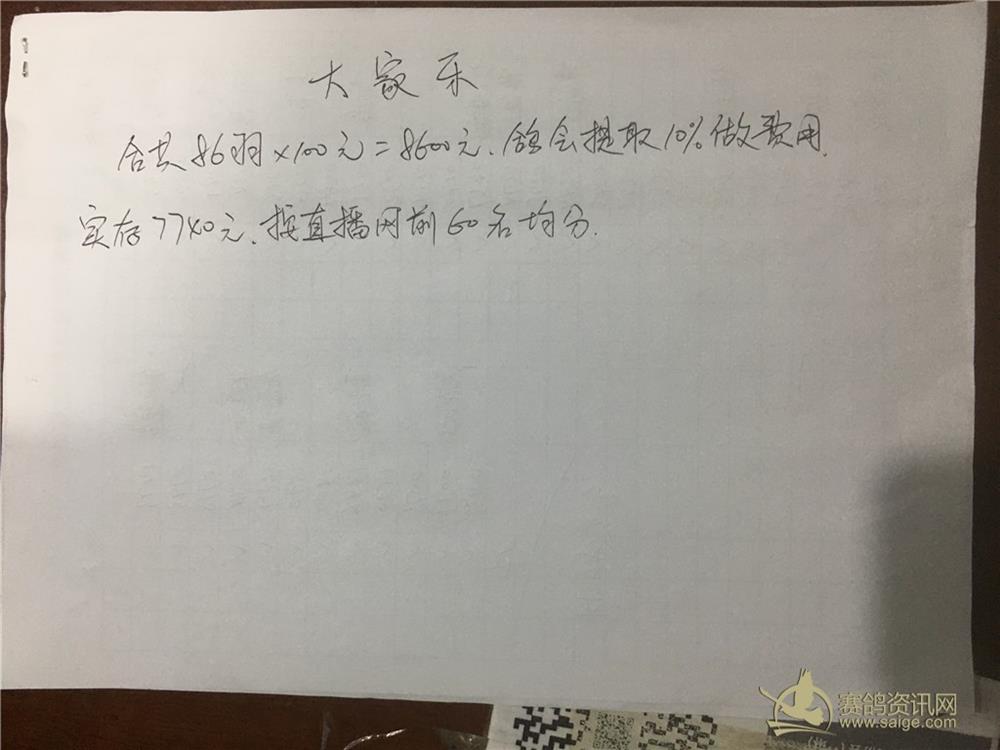 大家乐
合共86羽×100元=8600元、鸽会提取10%做费用.
实存7740元、按直播网前60名均分.
赛鸽资讯网
www.saige.com